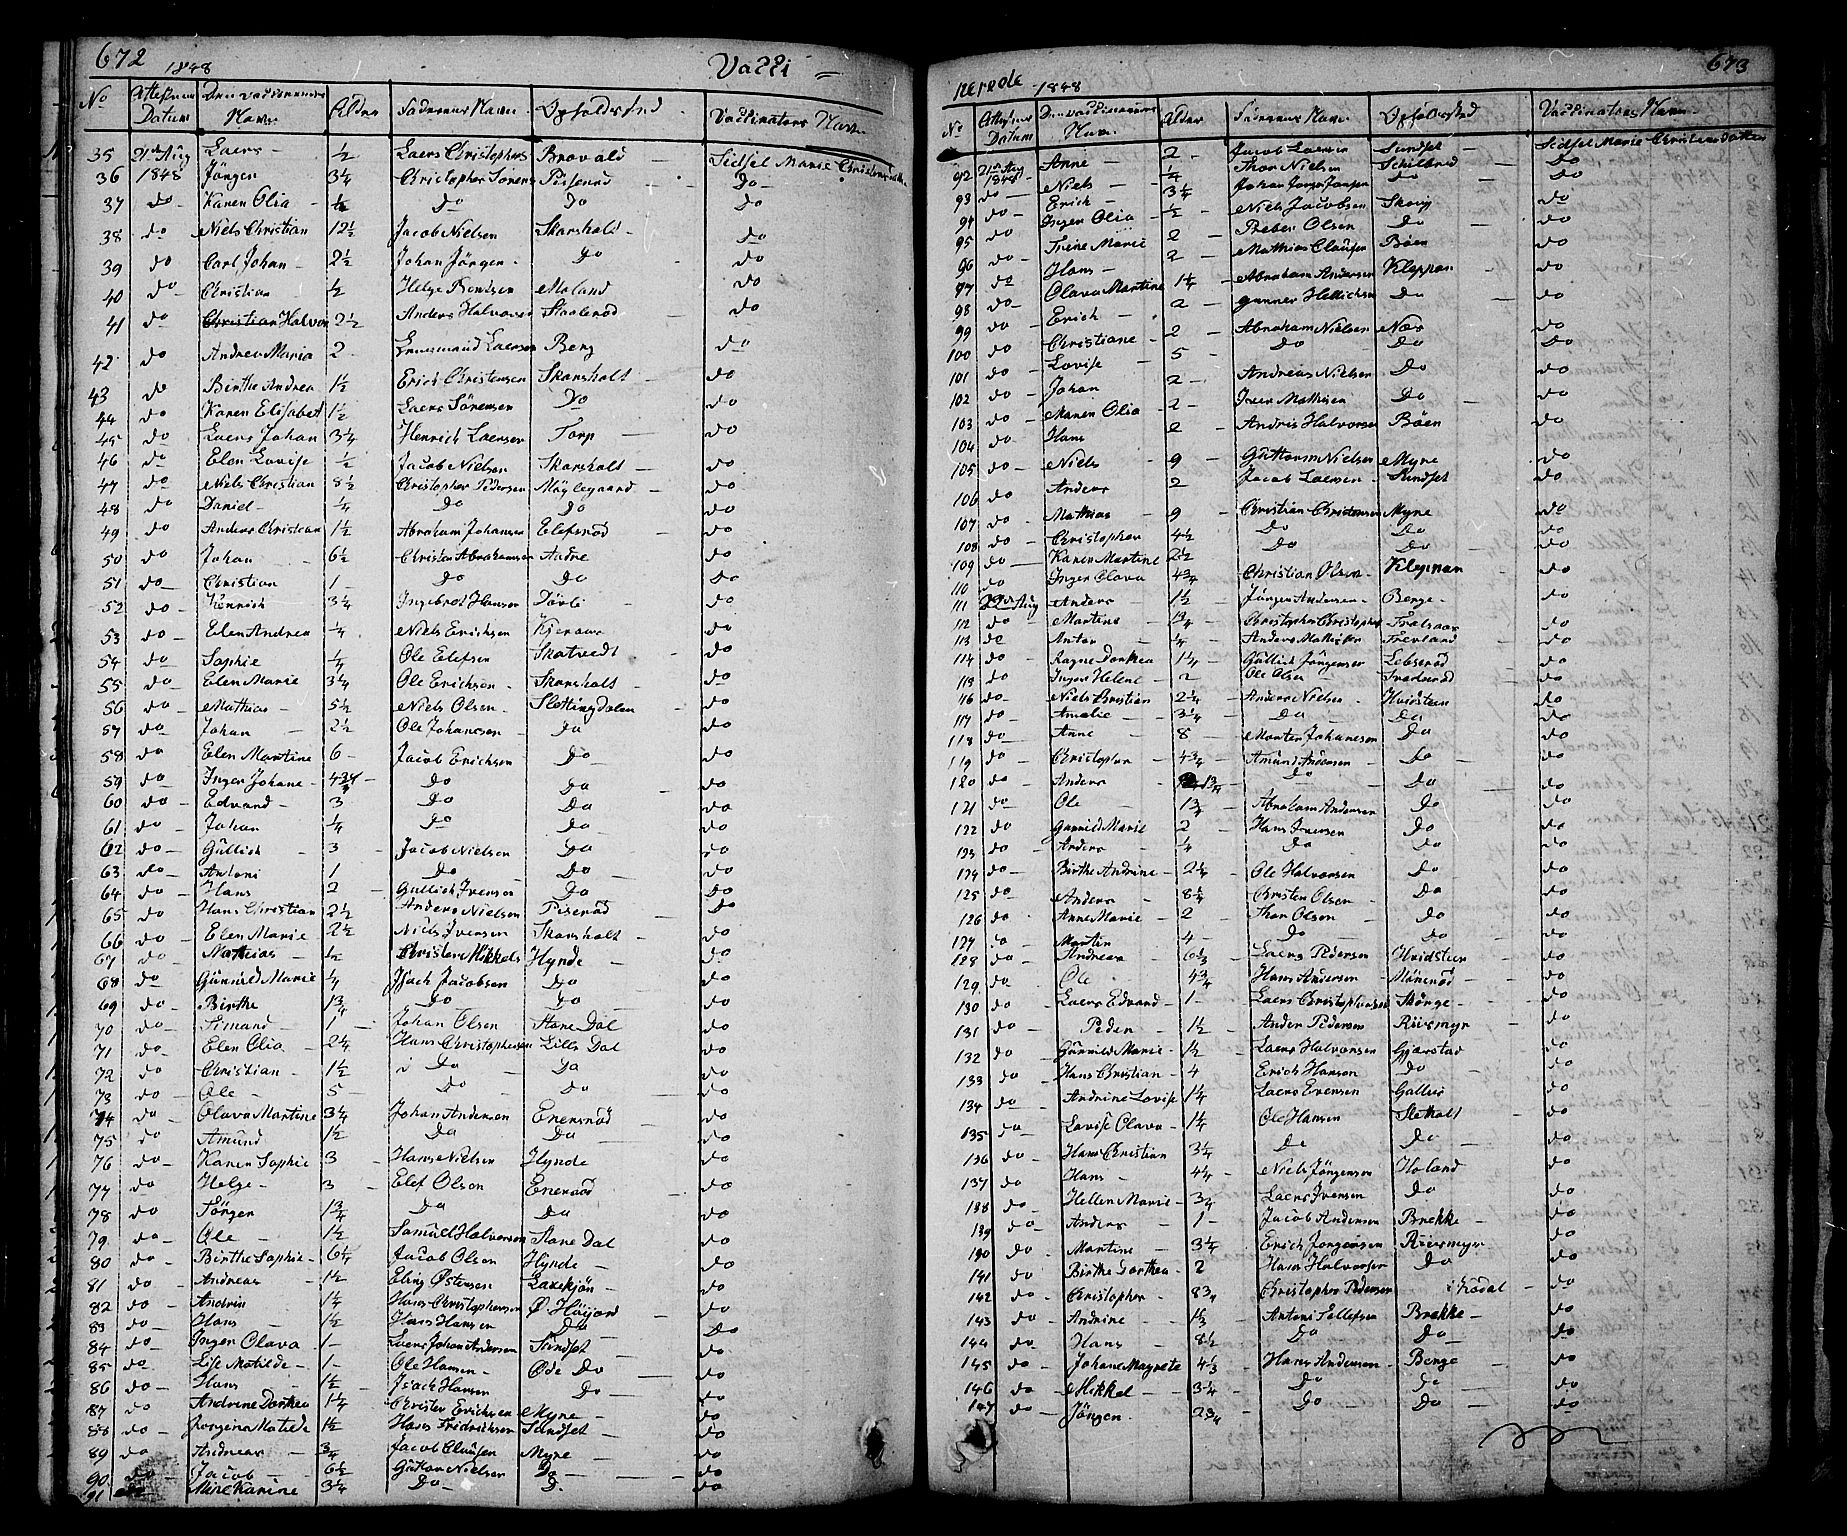 672 1848 Vacci =
No Datum Navn Alder Faderens Navn Opholdsted Vaccinators Navn
35 21de Aug Laers - ½ Laers Christophers Bravald - Sidsel Marie Christensdatter
36 1848 Jörgen 3¼ Christopher Sörens Pisserød - Do -
37 do - Karen Olia - ½ Do Do Do
38 do - Niels Christian 12½ Jacob Nielsen Skarsholt - do
39 do Carl Johan - 2½ Johan Jörgen - Do do
40 do - Christian ½ Helge Moland do
41 do Christian Halvor 2½ Anders Halvorsen do
42 do Andrea Maria 2 Laersen Berg do
43 do Birthe Andrea 1½ Erich Christensen Skarsholt - do
44 do Karen Elisabet 1½ Laers Sörensen Do do
45 do - Laers Johan 3¼ Henrich Laersen Torp - do
46 do Elen Lovise ½ Jacob Nielsen Skarsholt - do
47 do Niels Christian 8½ Christopher Pedersen Möglegaard - do
48 do Daniel - ¼ Do Do do
49 do Anders Christian 1½ Abraham Johansen Elefsrød do
50 do Johan - 6½ Christen Abrahamsen Andre do
51 do - Christian 1 - Do Do do
52 do - Henrich 3¼ Ingebret Hansen Dörli - do
53 do - Elen Andrea ¼ Niels Erichsen do
54 do - Sophie ¼ Ole Elefsen Skatvedt do
55 do - Elen Marie 3¼ Ole Erichsen - Skarsholt - do
56 do - Mathias - 5½ Niels Olsen - Slettingdalen do
57 do - Johan - 2½ Ole Johanesen - do do
58 do Elen Martine 6 - Jacob Erichsen Do - do
59 do - Inger Johane - 4¾ Do Do do
60 do - Edvard - 3 Do Do do
61 do - Johan ¼ Do Do - do
62 do - Gullich - 3 - Jacob Nielsen Do do
63 do - Antoni 1 Do Do - do
64 do - Hans 2 - Gullich Iversen Do do
65 do Hans Christian 2½ Anders Nielsen Piserød do
66 do - Elen Marie 2½ Niels Iversen Skarsholt - do
67 do - Mathias - ½ Christen Mikkels Hynde - do
68 do Gunnild Marie ¼ Isach Jacobsen Do do
69 do - Birthe 1¾ Do Do - do
70 do - Simand - 1 - Johan Olsen Store Dal do
71 do - Elen Olia - 2¼ Hans Christophersen Lille Dal do
72 do - Christian - 1½ Do Do do
73 do - Ole - 5 - Do Do do
74 do - Olava Martine 3¼ Johan Andersen Enersrød do
75 do Amund 1½ Do Do - do
76 do - Karen Sophie 3 - Hans Nielsen Hynde do
77 do - Helge - 3 - Elef Olsen Enersrød do
78 do Jörgen 1¾ Do Do do
79 do - Ole - 1½ Samuel Halvorsen Store Dal do
80 do - Birthe Sophie - 6¼ Jacob Olsen Hynde - do
81 do - Andreas 1½ Eling Østensen Laxekjön - do
82 do - Andrin 1¼ Hans Christophersen Ø Höijord do
83 do - Hans - 1½ Hans Hansen Do Do
84 do - Inger Olava 1 - Laers Johan Andersen Sundset do
85 do - Lise Matilde - 1 - Ole Hansen - Øde Do - do
86 do - Hans 1½ - Isach Hansen Do do
87 do - Andrine Dorthea 1¼ Christer Erichsen Myre - do
88 do - Jorgina Matilde 1½ Hans Fredrichsen Sundset do
89 do Andreas - ¾ Jacob Clausen Myre - do
90 do Jacob - 6½ Guttor Nielsen Do do
91 do Mine Karine 3¼ Do - D. do
nerede 1848 673
No Datum Navn Alder Faderens Navn Opholdsted Vaccinators Navn
92 21de Aug 1848 Anne - 2 - Jacob Laersen Sundset - Sidsel Marie Christensdatter
93 do - Niels - ¼ Thor Nielsen Do
94 do - Erich - 3¼ Johan Jörgen Jonsen do do
95 do Inger Olia - ½ - Niels Jacobsen Skoug do
96 do - Trine Marie 2 - Peder Olsen Do do
97 do Hans - 2 - Mathias Clausen Böen do
98 do - Olava Martine 1¼ - Abraham Andersen Kleppan do
99 do - Erich - 2 - Gunner Do - do
100 do Christiane - 2 Abraham Nielsen Næs do
101 do - Lovise - 5 - Do Do Do
102 do Johan 2 - Andreas Nielsen Do do
103 do - Maren Olia 2 - Iver Mathisen Do do
104 Hans 2 Andris Halvorsen Böen do
105 do - Niels - 9 - Guttorm Nielsen Myre do
106 do Anders 2 Jacob Laersen Sundset do
107 do - Mathias 9 - Christian Christensen Myre do
108 do - Christopher 4½ Do Do do
109 do - Karen Martine 2½ Do Do - do
110 do Inger Olava 4¾ - Christian Olsen - Kleppan do
111 22de Aug Anders 1½ Jörgen Andersen - Berge - do
112 do - Martine - 1¾ - Christopher Christophers do
113 do Anton ¼ - Anders do
114 do - Ragne Dorthea 1¼ - Gullich Jörgensen Lebserød do
115 do Inger Helene - 2 Ole Olsen do
116 do - Niels Christian 2¼ - Anders Nielsen - Hvidsteen do
117 do - Amalie - 3¼ Do Do do
118 do Anne - 8 - Morten Johanesen Do do
119 do - Christopher 4¾ - Amund Andersen - Do - do
120 do - Anders 1¾ Do Do do
121 do Ole - 1¾ Abraham Andersen Do do
122 do Gunnild Marie 2 - Hans Iversen Do do
123 do - Anders - ¼ Do do
124 do Birthe Andrine - 2¼ Ole Halvorsen Do - do
125 do - Anders - 8¼ Christen Olsen Do do
126 do Anne Marie - 2 - Thor Olsen - Do do
127 do - Martin 4 - Do - Do - do
128 do - Andreas 6⅓ Laers Pedersen Hvidsteen do
129 do - Ole 4¾ Hans Andersen - Mönerød do
130 do Laers Edvard - 1 - Laers Christophersen Skorge - do
131 do - Peder - 1½ - Anders Pedersen Riismyr do
132 do Gunnild Marie - 1½ - Laers Halvorsen Gjerstad do
133 do Hans Christian - 4 Erich Hansen Do do
134 do - Andrine Lovise 1¼ Laers Evensen Galteis do
135 do - Lovise Olava - 1¼ Ole Hansen Sletholt - do
136 do - Hans Christian 3½ Do Do - do
137 do - Hans - 4¼ - Niels Jörgensen Holand do
138 do Hellen Marie - ¾ Laers Iversen Do do
139 do - Anders 1 - Jacob Andersen Brekke - do
190 do - Martine - 3¼ - Erich Jorgensen Riismyr do
141 do Birthe Dorthea - 2 Hans Halvorsen Do do
142 do - Christopher - 8¾ Christopher Pedersen do
143 do - Andrine - 1⅓ Antoni Brekke - do
144 do - Hans 8½ Do Do - do
145 do - Johane Magrete 4⅓ - Hans Andersen - Berge - do
146 do - Mikkel - 3¼ - Do Do do
147 do - Jörgen - 2¾ Do - Do - do